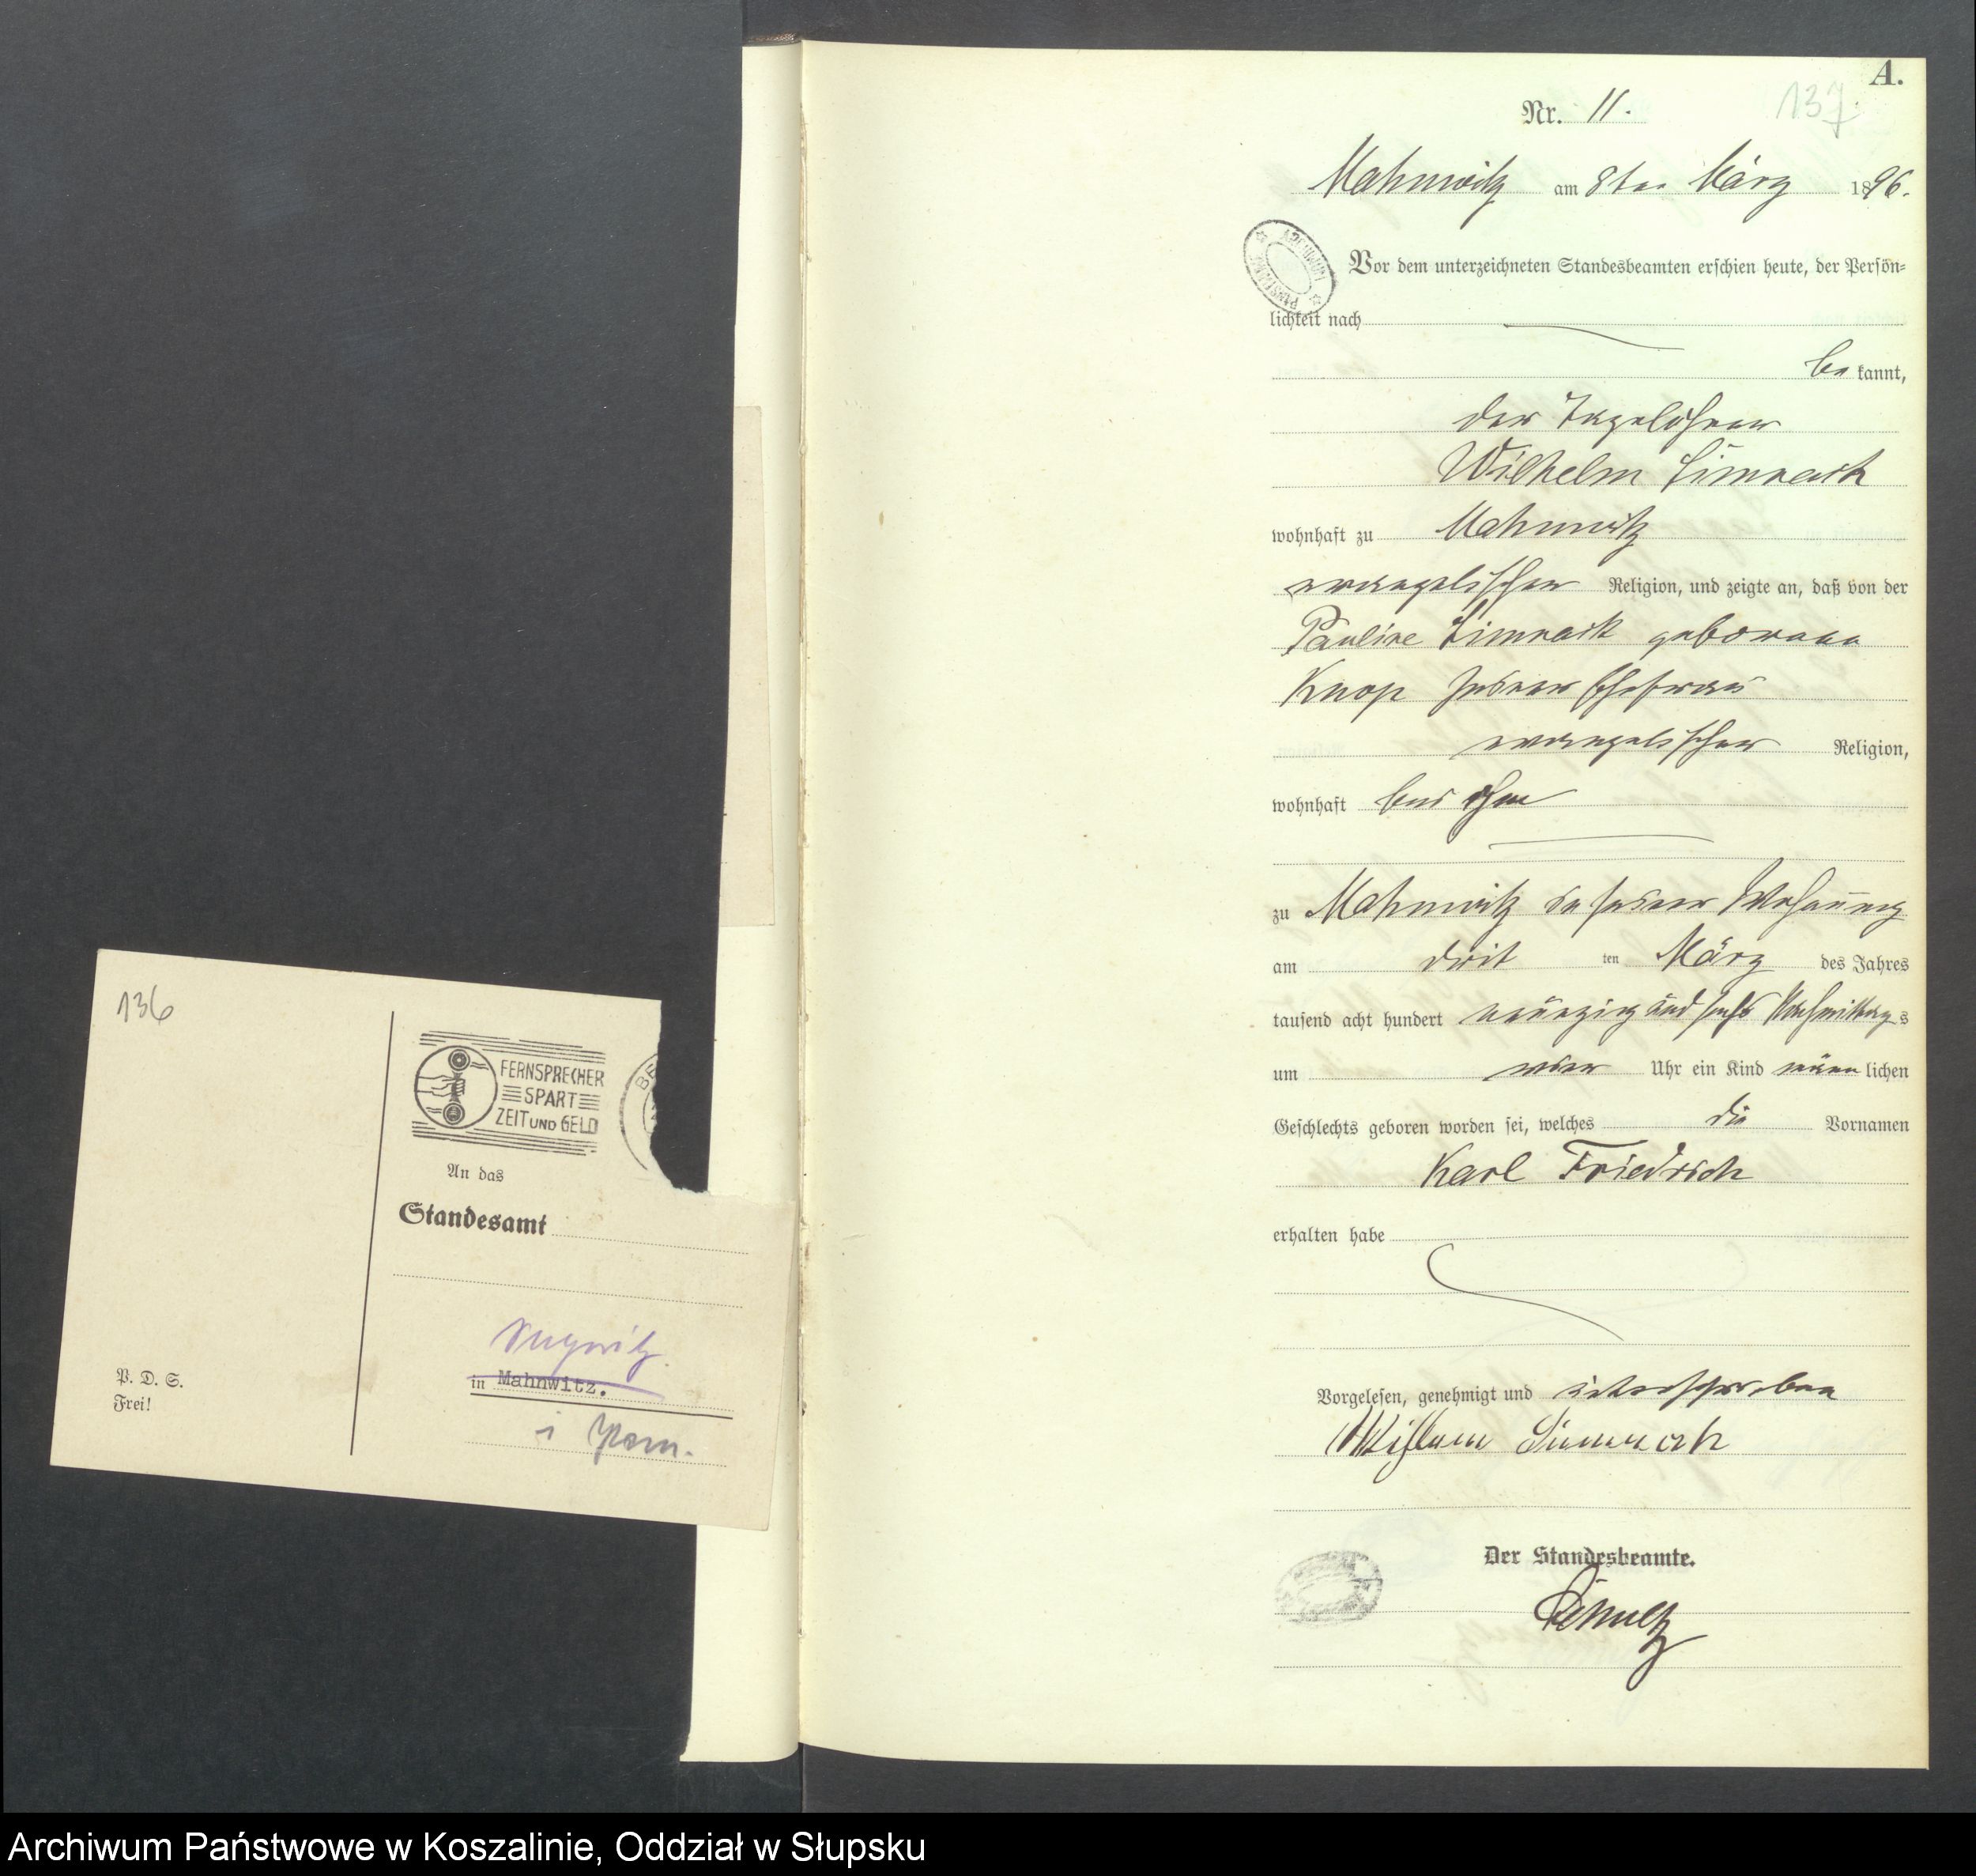 136
FERNSPRECHER
SPART
ZEIT UND GELD
An das
Standesamt
in Mahnwitz.
i Pom.
P. D. S.
Frei!
A.
137
Nr. 11.
Mahnwitz am 8ten März 1896.
Vor dem unterzeichneten Standesbeamten erschien heute, der Persön-
lichkeit nach
be kannt,
der Tagelöhner
Wilhelm Simrack
wohnhaft zu Mahnwitz
evangelischer Religion, und zeigte an, daß von der
Pauline Simrack geborene
Knop seiner Ehefrau
evangelischer Religion,
wohnhaft bei ihm
zu Mahnwitz in seiner Wohnung
am drit ten März des Jahres
tausend acht hundert neunzig und sechs Nachmittags
um vier Uhr ein Kind männ lichen
Geschlechts geboren worden sei, welches die Vornamen
Karl Friedrich
erhalten habe
Vorgelesen, genehmigt und unterschrieben
Wilhelm Simrack
Der Standesbeamte.
Schultz
Archiwum Państwowe w Koszalinie, Oddział w Słupsku